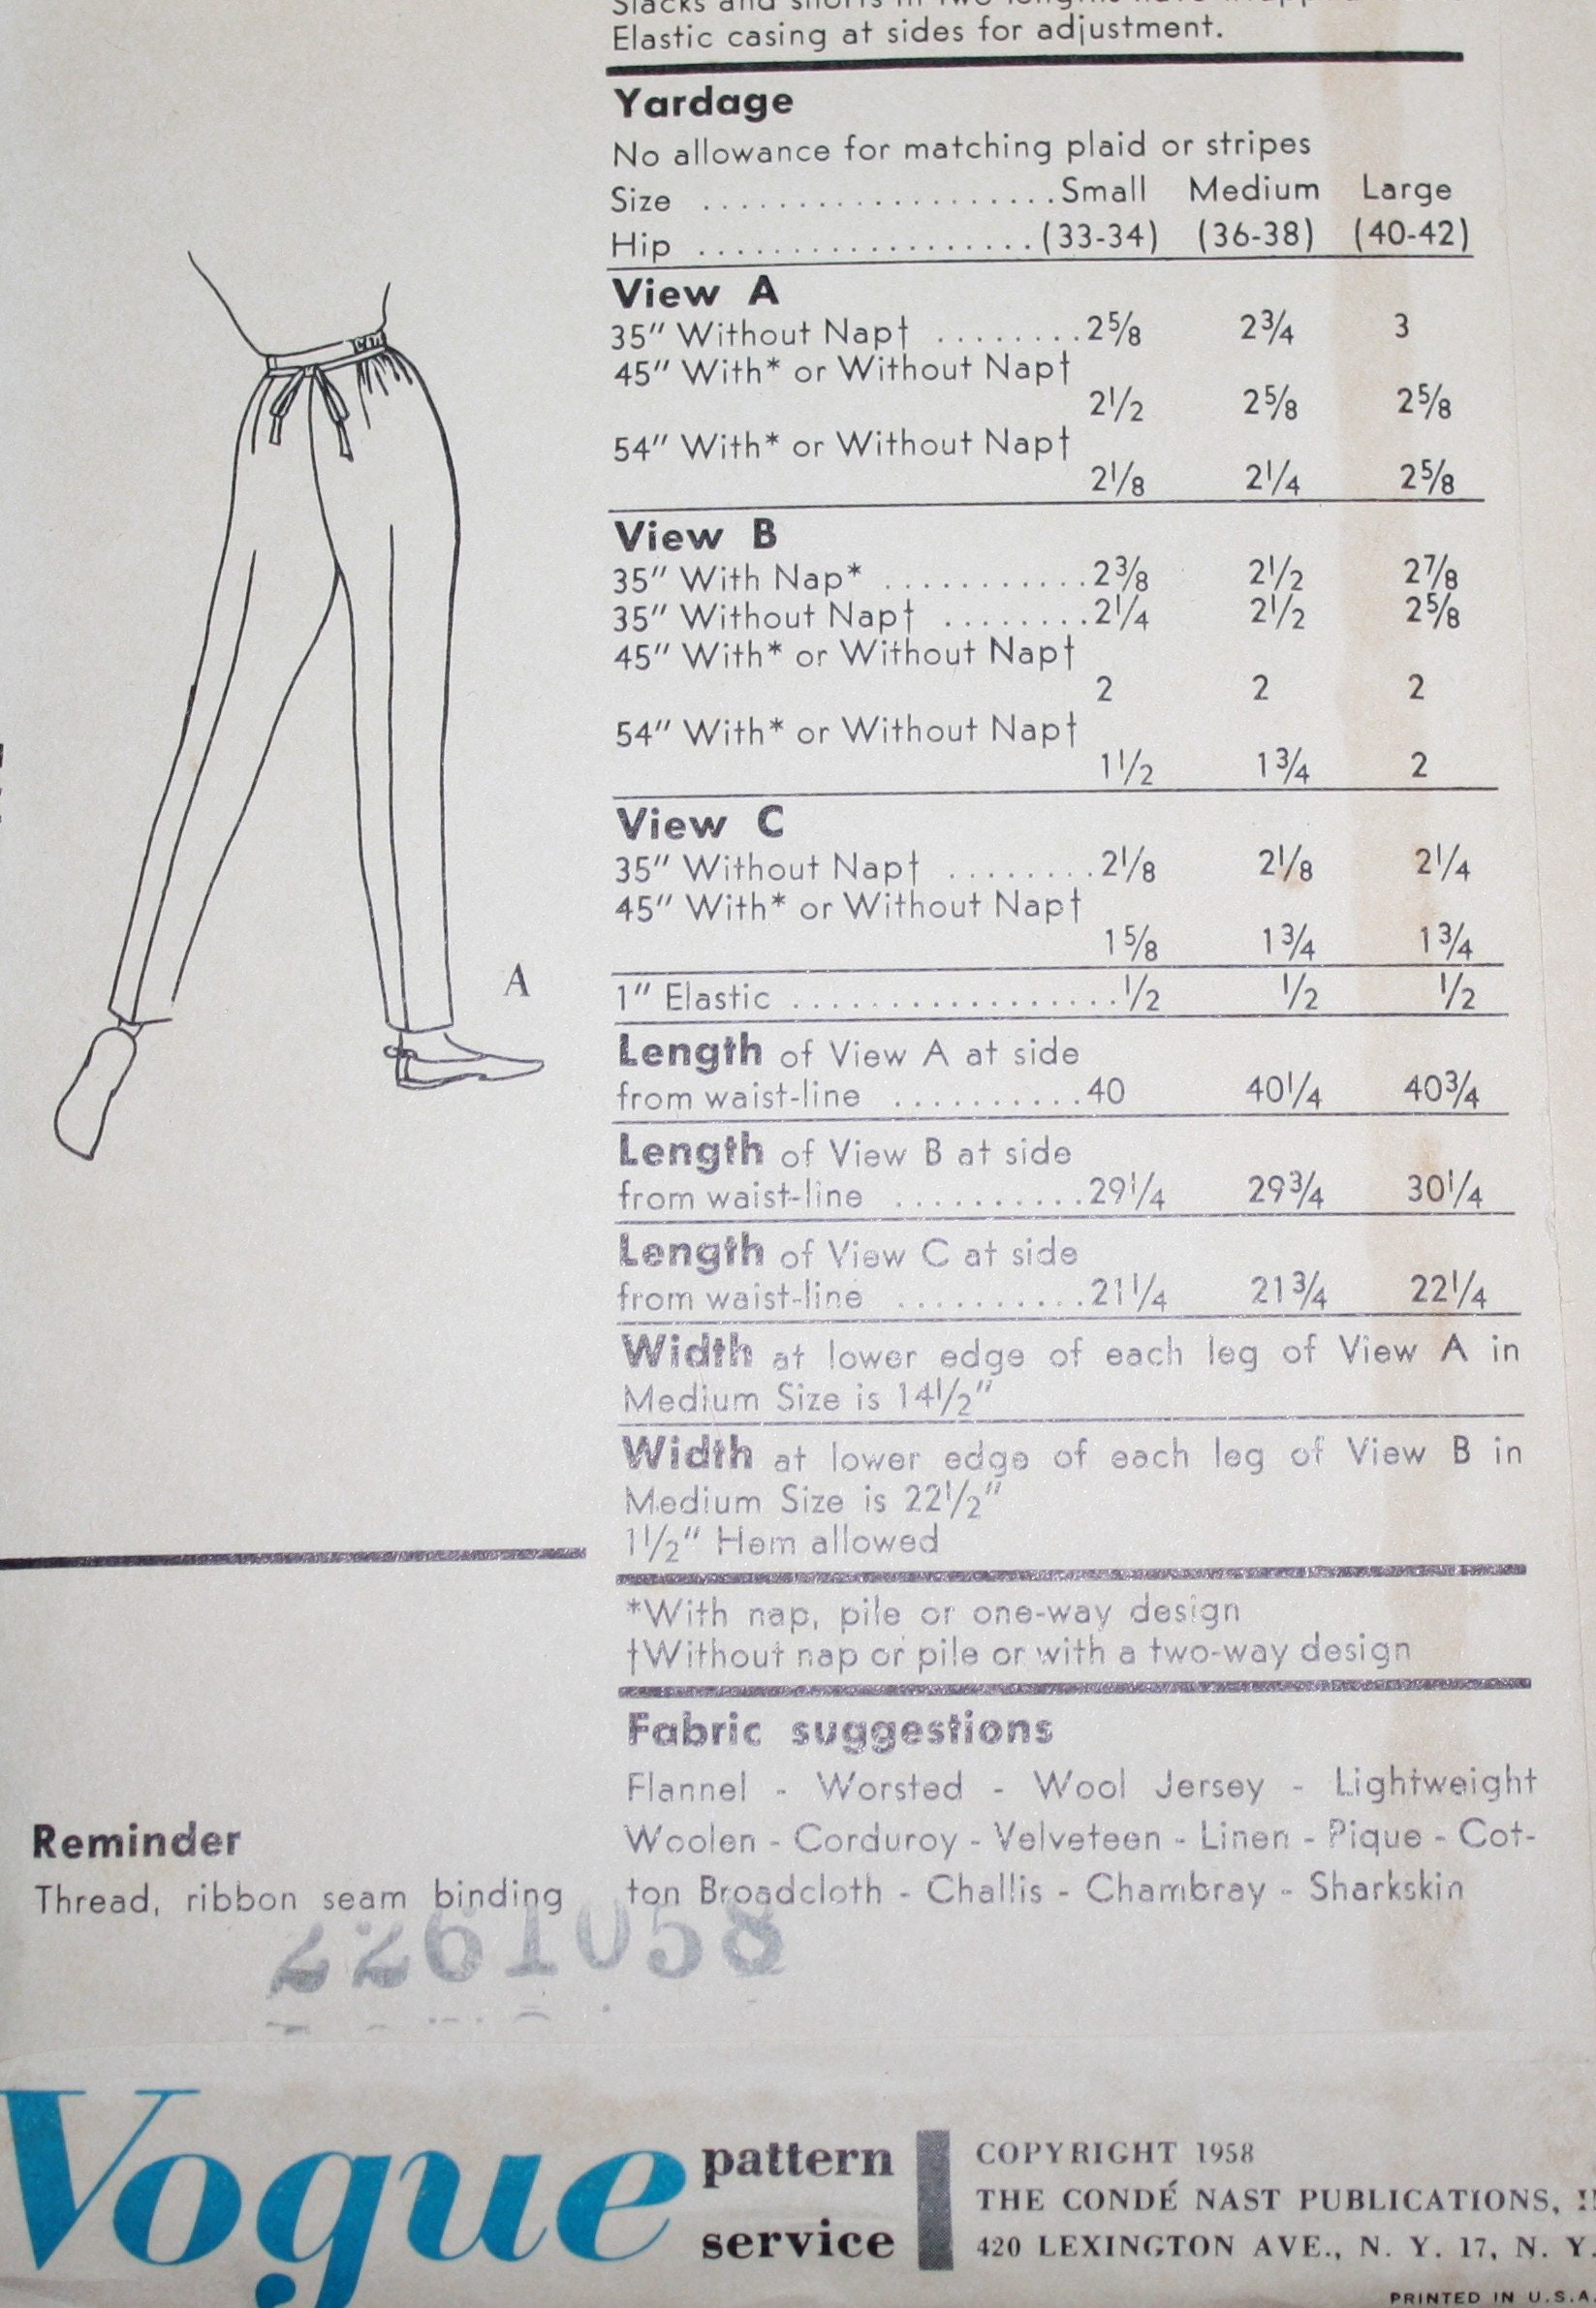 Slacks and shorts in two lengths have wrapped
Elastic casing at sides for adjustment.
Yardage
No allowance for matching plaid or stripes
Size ................... Small Medium Large
Hip .................. (33-34) (36-38) (40-42)
View A
35" Without Nap† ........ 2⅝ 2¾ 3
45" With* or Without Nap†
2½ 2⅝ 2⅝
54" With* or Without Nap†
2⅛ 2¼ 2⅝
View B
35" With Nap* ........... 2⅜ 2½ 2⅞
35" Without Nap† ........ 2¼ 2½ 2⅝
45" With* or Without Nap†
2 2 2
54" With* or Without Nap†
1½ 1¾ 2
View C
35" Without Nap† ........ 2⅛ 2⅛ 2¼
45" With* or Without Nap†
1⅝ 1¾ 1¾
1" Elastic .................. ½ ½ ½
Length of View A at side
from waist-line .......... 40 40¼ 40¾
Length of View B at side
from waist-line .......... 29¼ 29¾ 30¼
Length of View C at side
from waist-line .......... 21¼ 21¾ 22¼
Width at lower edge of each leg of View A in
Medium Size is 14½"
Width at lower edge of each leg of View B in
Medium Size is 22½"
1½" Hem allowed
*With nap, pile or one-way design
†Without nap or pile or with a two-way design
Fabric suggestions
Flannel - Worsted - Wool Jersey - Lightweight
Woolen - Corduroy - Velveteen - Linen - Pique - Cot-
ton Broadcloth - Challis - Chambray - Sharkskin
A
Reminder
Thread, ribbon seam binding
2261058
Vogue pattern service
COPYRIGHT 1958
THE CONDÉ NAST PUBLICATIONS,
420 LEXINGTON AVE., N. Y. 17, N. Y.
PRINTED IN U.S.A.